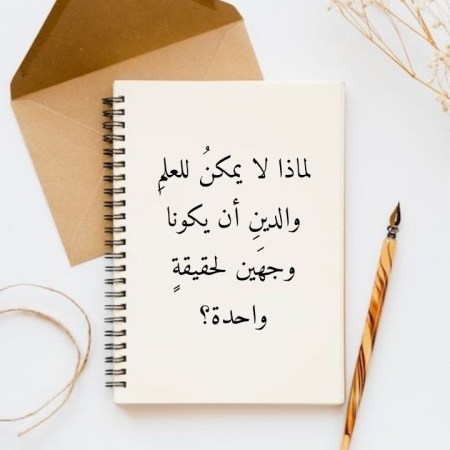 لماذا لا يمكنُ للعلمِ
والدينِ أن يكونا
وجهَين لحقيقةٍ
واحدة؟